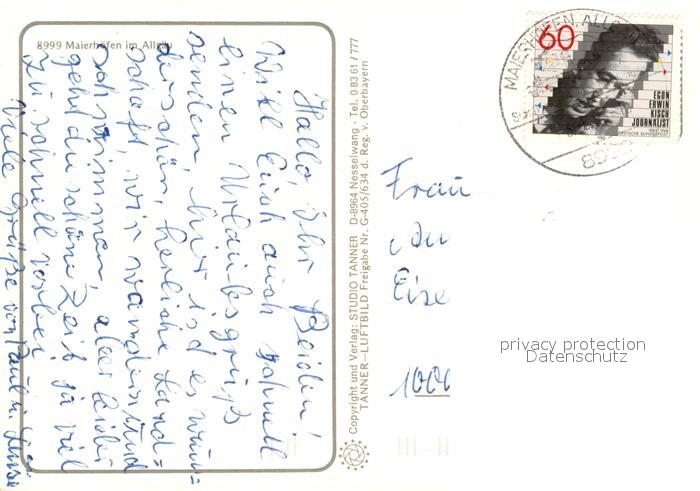 8999 Maierhöfen im Allgäu
Hallo, Ihr Beiden!
Will Euch auch schnell
einen Urlaubsgruß
senden, hier ist es wun=
derschön, herrliche Land=
schaft, wir wandern und
schwimmen, aber leider
geht die schöne Zeit ja viel
zu schnell vorbei.
Viele Grüße von
Copyright und Verlag: STUDIO TANNER D-8964 Nesselwang · Tel. 0 83 61 / 777
TANNER—LUFTBILD Freigabe Nr. G-405/634 d. Reg. v. Oberbayern
MAIERHÖFEN, ALLG
89
60
EGON
ERWIN
KISCH
JOURNALIST
DEUTSCHE BUNDESPOST
Frau
Eise
1000
privacy protection
Datenschutz